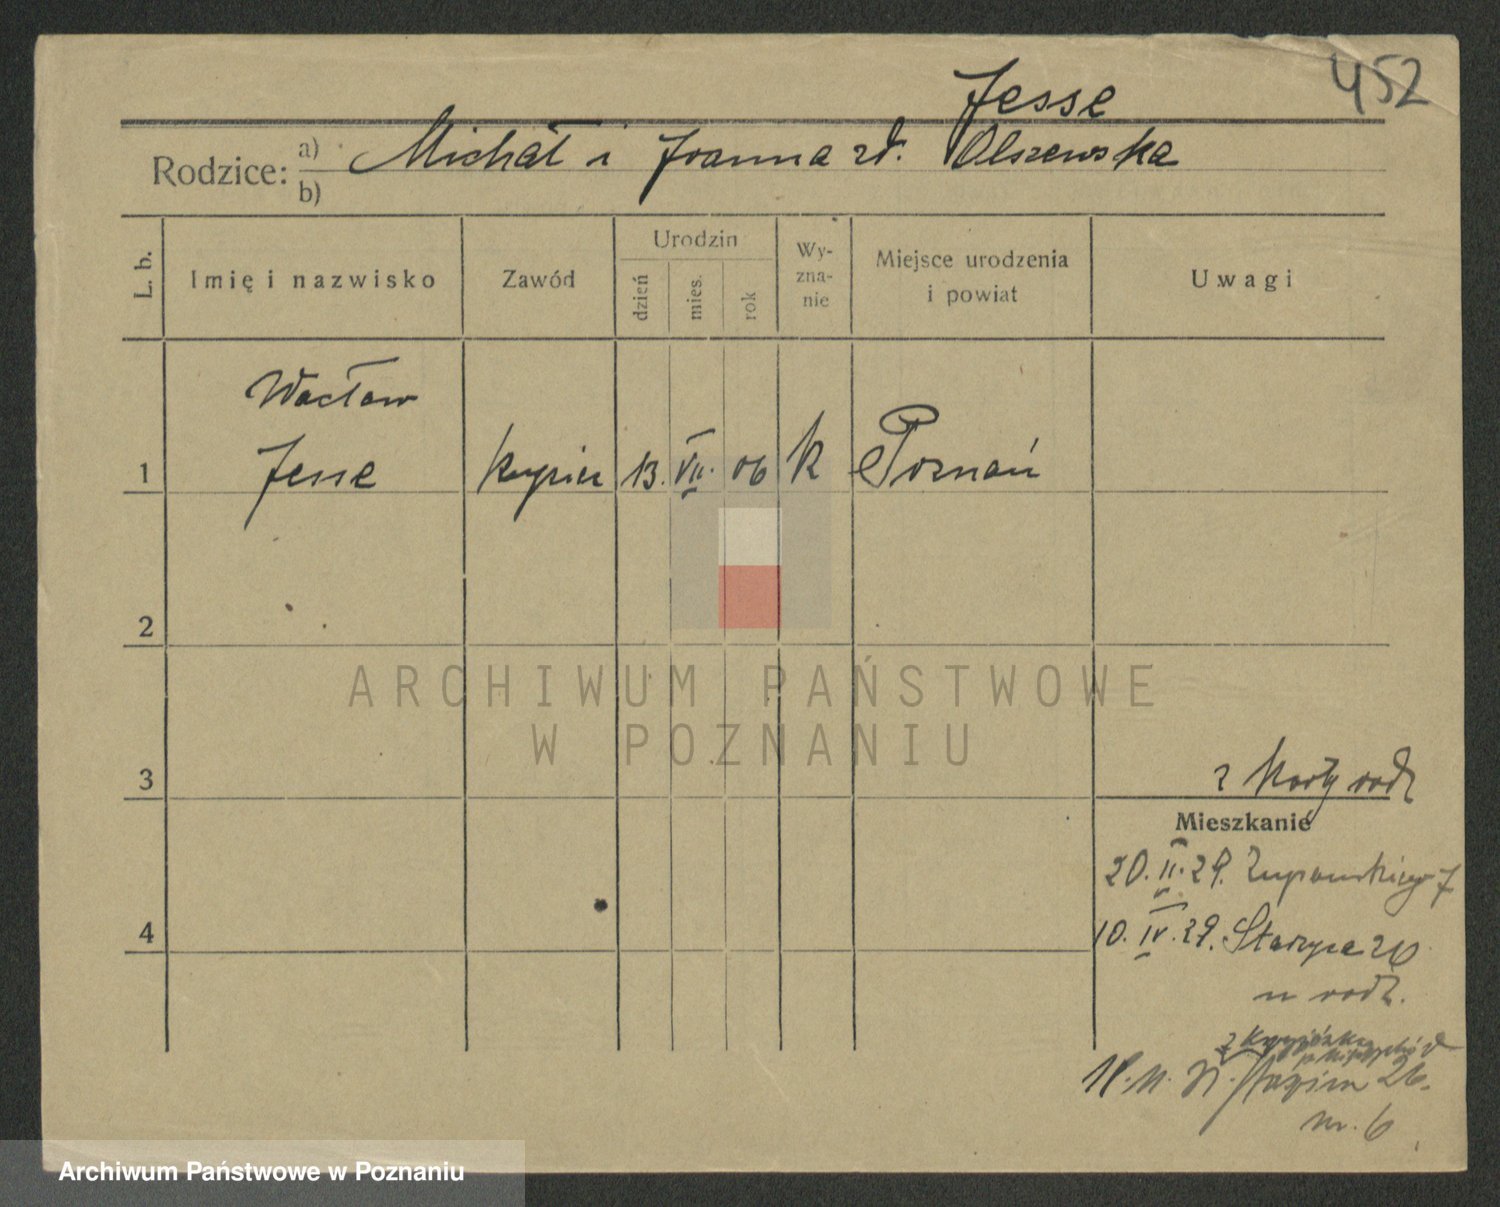 452
Jesse
Rodzice: a) Michał i Joanna zd. Olszewska
b)
L. b. Imię i nazwisko Zawód Urodzin dzień mies. rok Wy-zna-nie Miejsce urodzenia i powiat Uwagi
Wacław
1 Jesse kupiec 13. VII. 06 k Poznań
2
ARCHIWUM PAŃSTWOWE
W POZNANIU
3 z karty rodz
Mieszkanie
20. II. 29. Żupańskiego 7
4 10. IV. 29. Staszyca 26
u rodz.
26.
m. 6
Archiwum Państwowe w Poznaniu